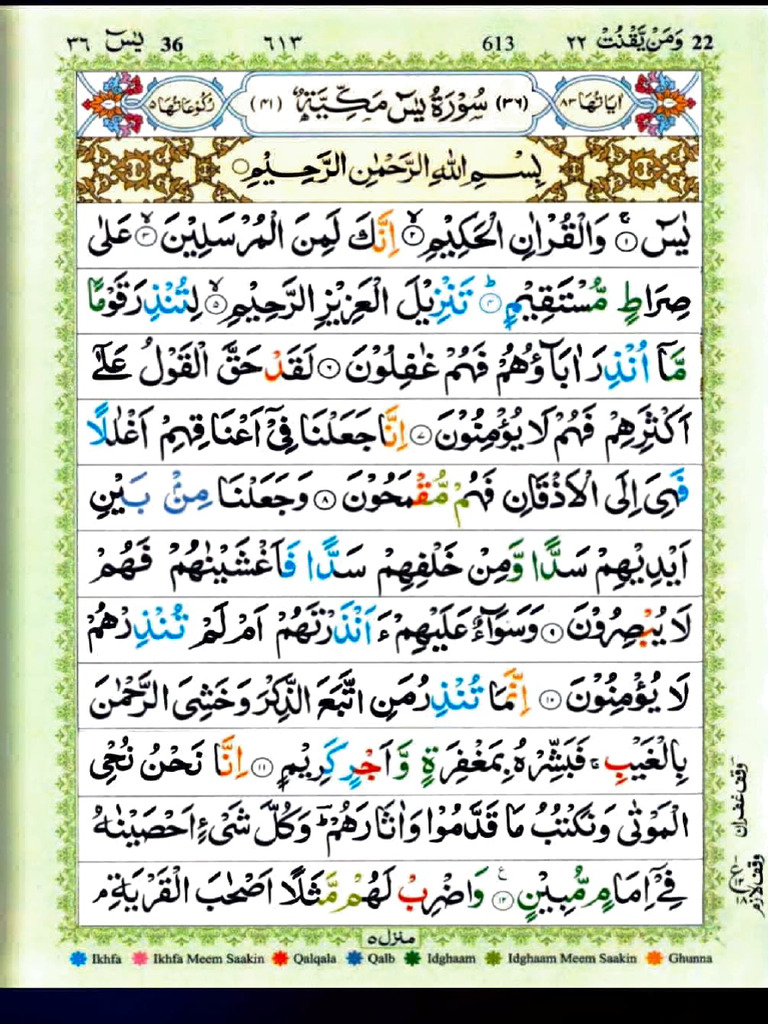 22 وَمَنْ يَّقْنُتْ ٢٢ 613 ٦١٣ 36 يٰسٓ ٣٦
اٰيَاتُهَا ٨٣ (٣٦) سُوْرَةُ يٰسٓ مَكِّيَّةٌ (٤١) رُكُوْعَاتُهَا ٥
بِسْمِ اللّٰهِ الرَّحْمٰنِ الرَّحِيْمِ
يٰسٓ ۚ ۝١ وَالْقُرْاٰنِ الْحَكِيْمِ ۙ ۝٢ اِنَّكَ لَمِنَ الْمُرْسَلِيْنَ ۙ ۝٣ عَلٰى
صِرَاطٍ مُّسْتَقِيْمٍ ؕ ۝٤ تَنْزِيْلَ الْعَزِيْزِ الرَّحِيْمِ ۙ ۝٥ لِتُنْذِرَ قَوْمًا
مَّاۤ اُنْذِرَ اٰبَآؤُهُمْ فَهُمْ غٰفِلُوْنَ ۝٦ لَقَدْ حَقَّ الْقَوْلُ عَلٰٓى
اَكْثَرِهِمْ فَهُمْ لَا يُؤْمِنُوْنَ ۝٧ اِنَّا جَعَلْنَا فِيْۤ اَعْنَاقِهِمْ اَغْلٰلًا
فَهِيَ اِلَى الْاَذْقَانِ فَهُمْ مُّقْمَحُوْنَ ۝٨ وَجَعَلْنَا مِنْۢ بَيْنِ
اَيْدِيْهِمْ سَدًّا وَّمِنْ خَلْفِهِمْ سَدًّا فَاَغْشَيْنٰهُمْ فَهُمْ
لَا يُبْصِرُوْنَ ۝٩ وَسَوَآءٌ عَلَيْهِمْ ءَاَنْذَرْتَهُمْ اَمْ لَمْ تُنْذِرْهُمْ
لَا يُؤْمِنُوْنَ ۝١٠ اِنَّمَا تُنْذِرُ مَنِ اتَّبَعَ الذِّكْرَ وَخَشِيَ الرَّحْمٰنَ
بِالْغَيْبِ ۚ فَبَشِّرْهُ بِمَغْفِرَةٍ وَّاَجْرٍ كَرِيْمٍ ۝١١ اِنَّا نَحْنُ نُحْيِ
الْمَوْتٰى وَنَكْتُبُ مَا قَدَّمُوْا وَاٰثَارَهُمْ ؕ وَكُلَّ شَيْءٍ اَحْصَيْنٰهُ
فِيْۤ اِمَامٍ مُّبِيْنٍ ۝١٢ وَاضْرِبْ لَهُمْ مَّثَلًا اَصْحٰبَ الْقَرْيَةِ ۘ
وقف غفران
وقف لازم
منزل ٥
Ikhfa Ikhfa Meem Saakin Qalqala Qalb Idghaam Idghaam Meem Saakin Ghunna